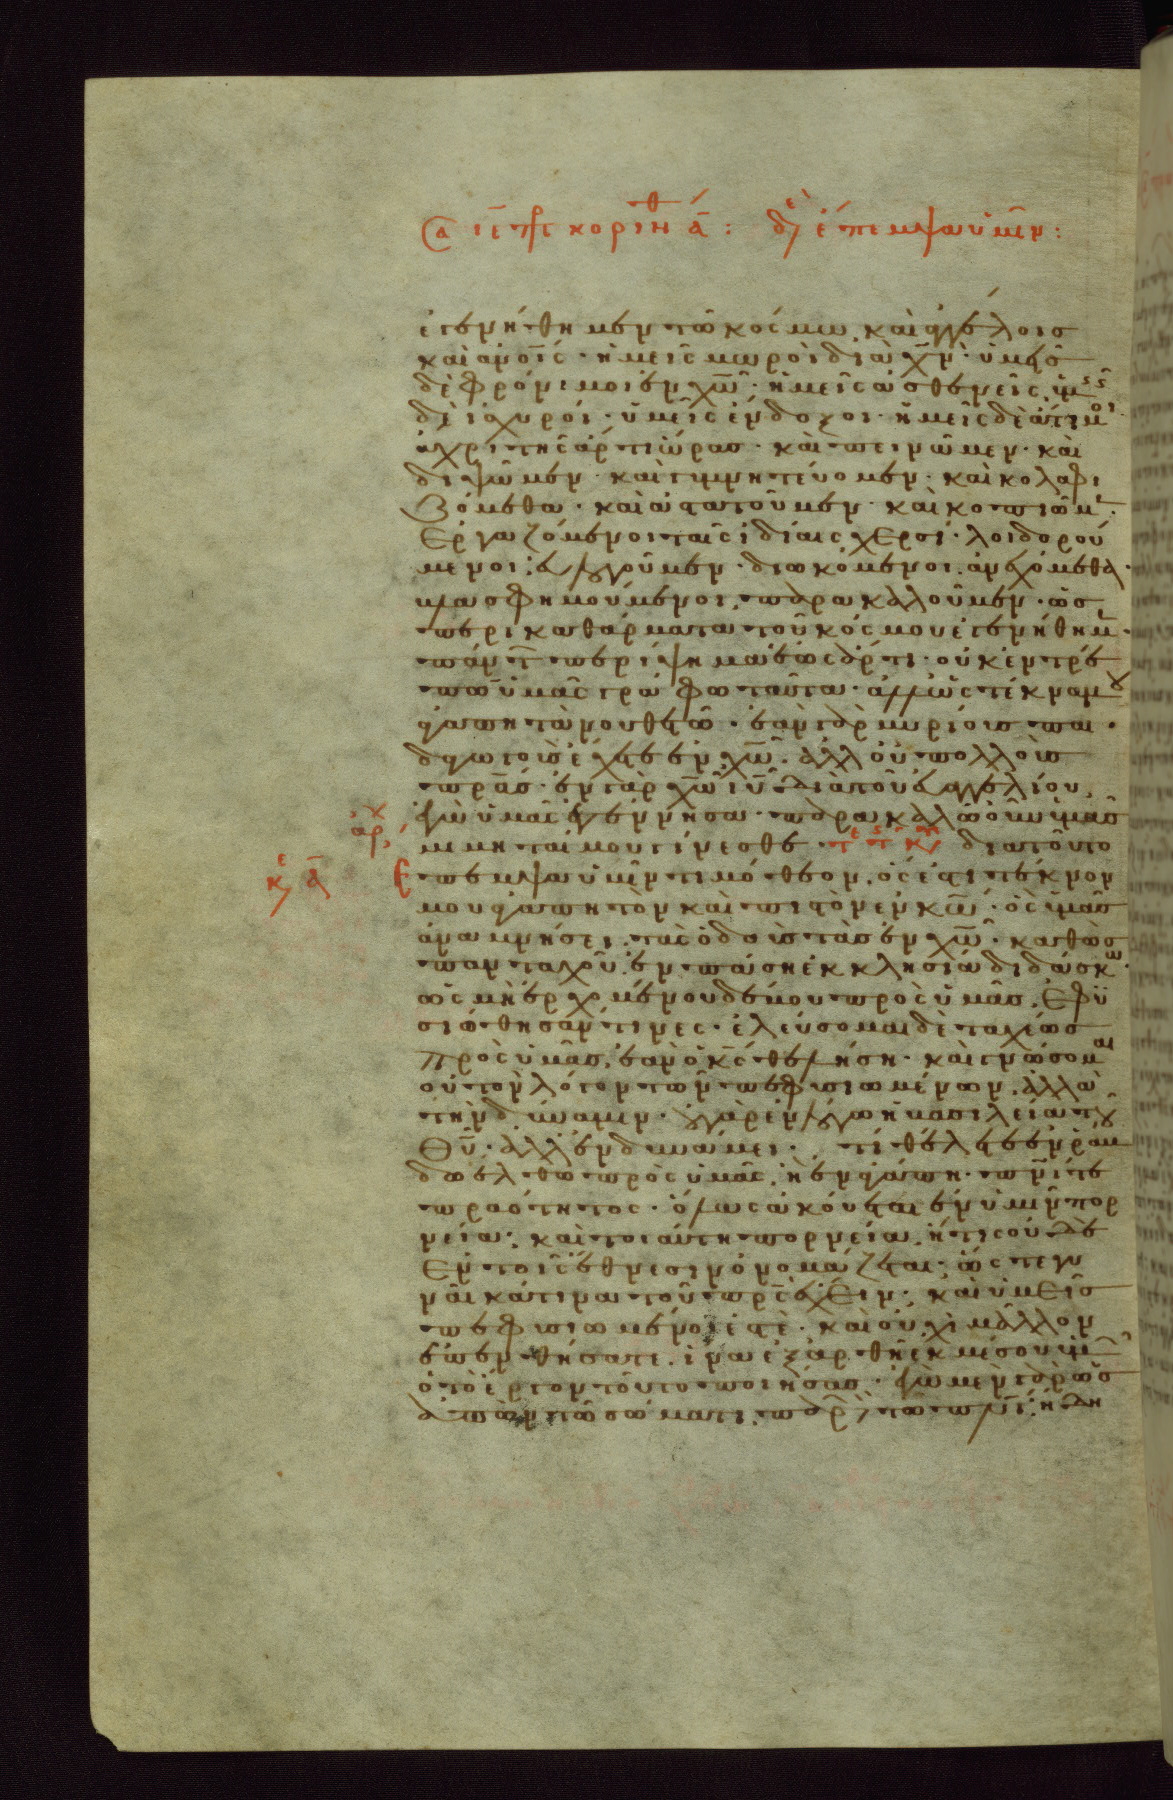 ἐγενήθημεν τῶ κόσμω καὶ ἀγγέλοις
καὶ ἀνοῖς· ἡμεῖς μωροὶ διὰ χν· ὑμεῖς
δὲ φρόνιμοι ἐν χω· ἡμεῖς ἀσθενεῖς, ὑμεῖς
δὲ ἰσχυροί· ὑμεῖς ἔνδοξοι· ἡμεῖς δὲ ἄτιμοι·
ἄχρι τῆς ἄρτι ὥρας· καὶ πεινῶμεν· καὶ
διψῶμεν· καὶ γυμνητεύομεν· καὶ κολαφι
ζόμεθα· καὶ ἀστατοῦμεν· καὶ κοπιῶμ·
ἐργαζόμενοι ταῖς ἰδίαις χερσί· λοιδορού
μενοι, εὐλογοῦμεν· διωκόμενοι, ἀνεχόμεθα·
βλασφημούμενοι, παρακαλοῦμεν· ὡς
περικαθάρματα τοῦ κόσμου ἐγενήθημ·
πάντ περίψημα ἕως ἄρτι· οὐκ ἐντρέ
πων ὑμᾶς γράφω ταῦτα· ἀλλ' ὡς τέκνα μου
ἀγαπητὰ νουθετῶ· ἐὰν γὰρ μυρίους παι
δαγωγοὺς ἔχητε ἐν χω· ἀλλ' οὐ πολλοὺς
πρας· ἐν γὰρ χω ιυ διὰ τοῦ εὐαγγελίου,
ἐγὼ ὑμᾶς ἐγέννησα· παρακαλῶ οὖν ὑμᾶς
μιμηταί μου γίνεσθε· διὰ τοῦτο
ἔπεμψα ὑμῖν τιμόθεον, ὅς ἐστι τέκνον
μου ἀγαπητὸν καὶ πιστὸν ἐν κω· ὃς ὑμᾶς
ἀναμνήσει τὰς ὁδούς τὰς ἐν χω· καθὼς
πανταχοῦ ἐν πάση ἐκκλησία διδάσκω·
ὡς μὴ ἐρχομένου δέ μου πρὸς ὑμᾶς, ἐφυ
σιώθησάν τινες· ἐλεύσομαι δὲ ταχέως
πρὸς ὑμᾶς, ἐὰν ὁ κς θελήση· καὶ γνώσομαι
οὐ τὸν λόγον τῶν πεφυσιωμένων, ἀλλὰ
τὴν δύναμιν· οὐ γὰρ ἐν λόγω ἡ βασιλεία τοῦ
θυ· ἀλλ' ἐν δυνάμει· τί θέλετε ἐν ράβ
δω ἔλθω πρὸς ὑμᾶς, ἢ ἐν ἀγάπη· πνι τε
πραότητος· ὅλως ἀκούεται ἐν ὑμῖν πορ
νεία· καὶ τοιαύτη πορνεία, ἥτις οὐδὲ
ἐν τοῖς ἔθνεσιν ὀνομάζεται· ὥστε γυ
ναῖκά τινα τοῦ πρς ἔχειν· καὶ ὑμεῖς
πεφυσιωμένοι ἐστὲ· καὶ οὐχὶ μᾶλλον
ἐπενθήσατε, ἵνα ἐξαρθῆ ἐκ μέσου ὑμῶν
ὁ τὸ ἔργον τοῦτο ποιήσας· ἐγὼ μὲν γὰρ ὡς
ἀπὼν τῶ σώματι, παρὼν δὲ τῶ πνι, ἤδη